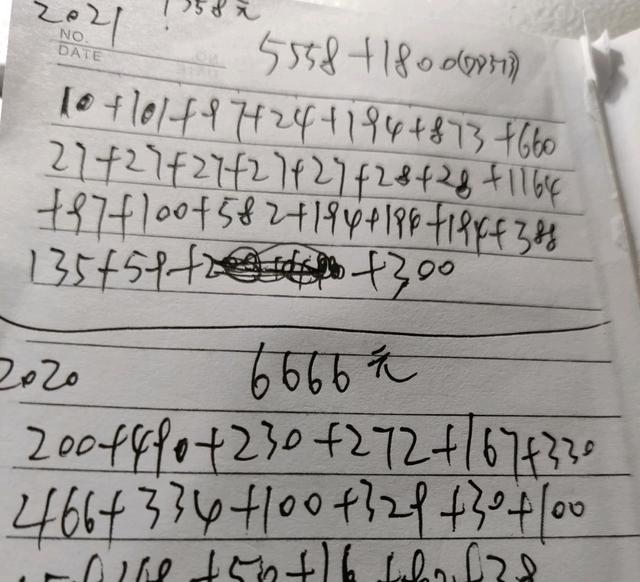 2021 7358元
NO.
DATE
5558+1800
10+101+97+24+194+873+660
27+27+27+27+27+28+28+1164
+97+100+582+194+194+194+388
135+59+2 +300
2020 6666元
200+490+230+272+167+330
466+334+100+329+30+100
+50+16